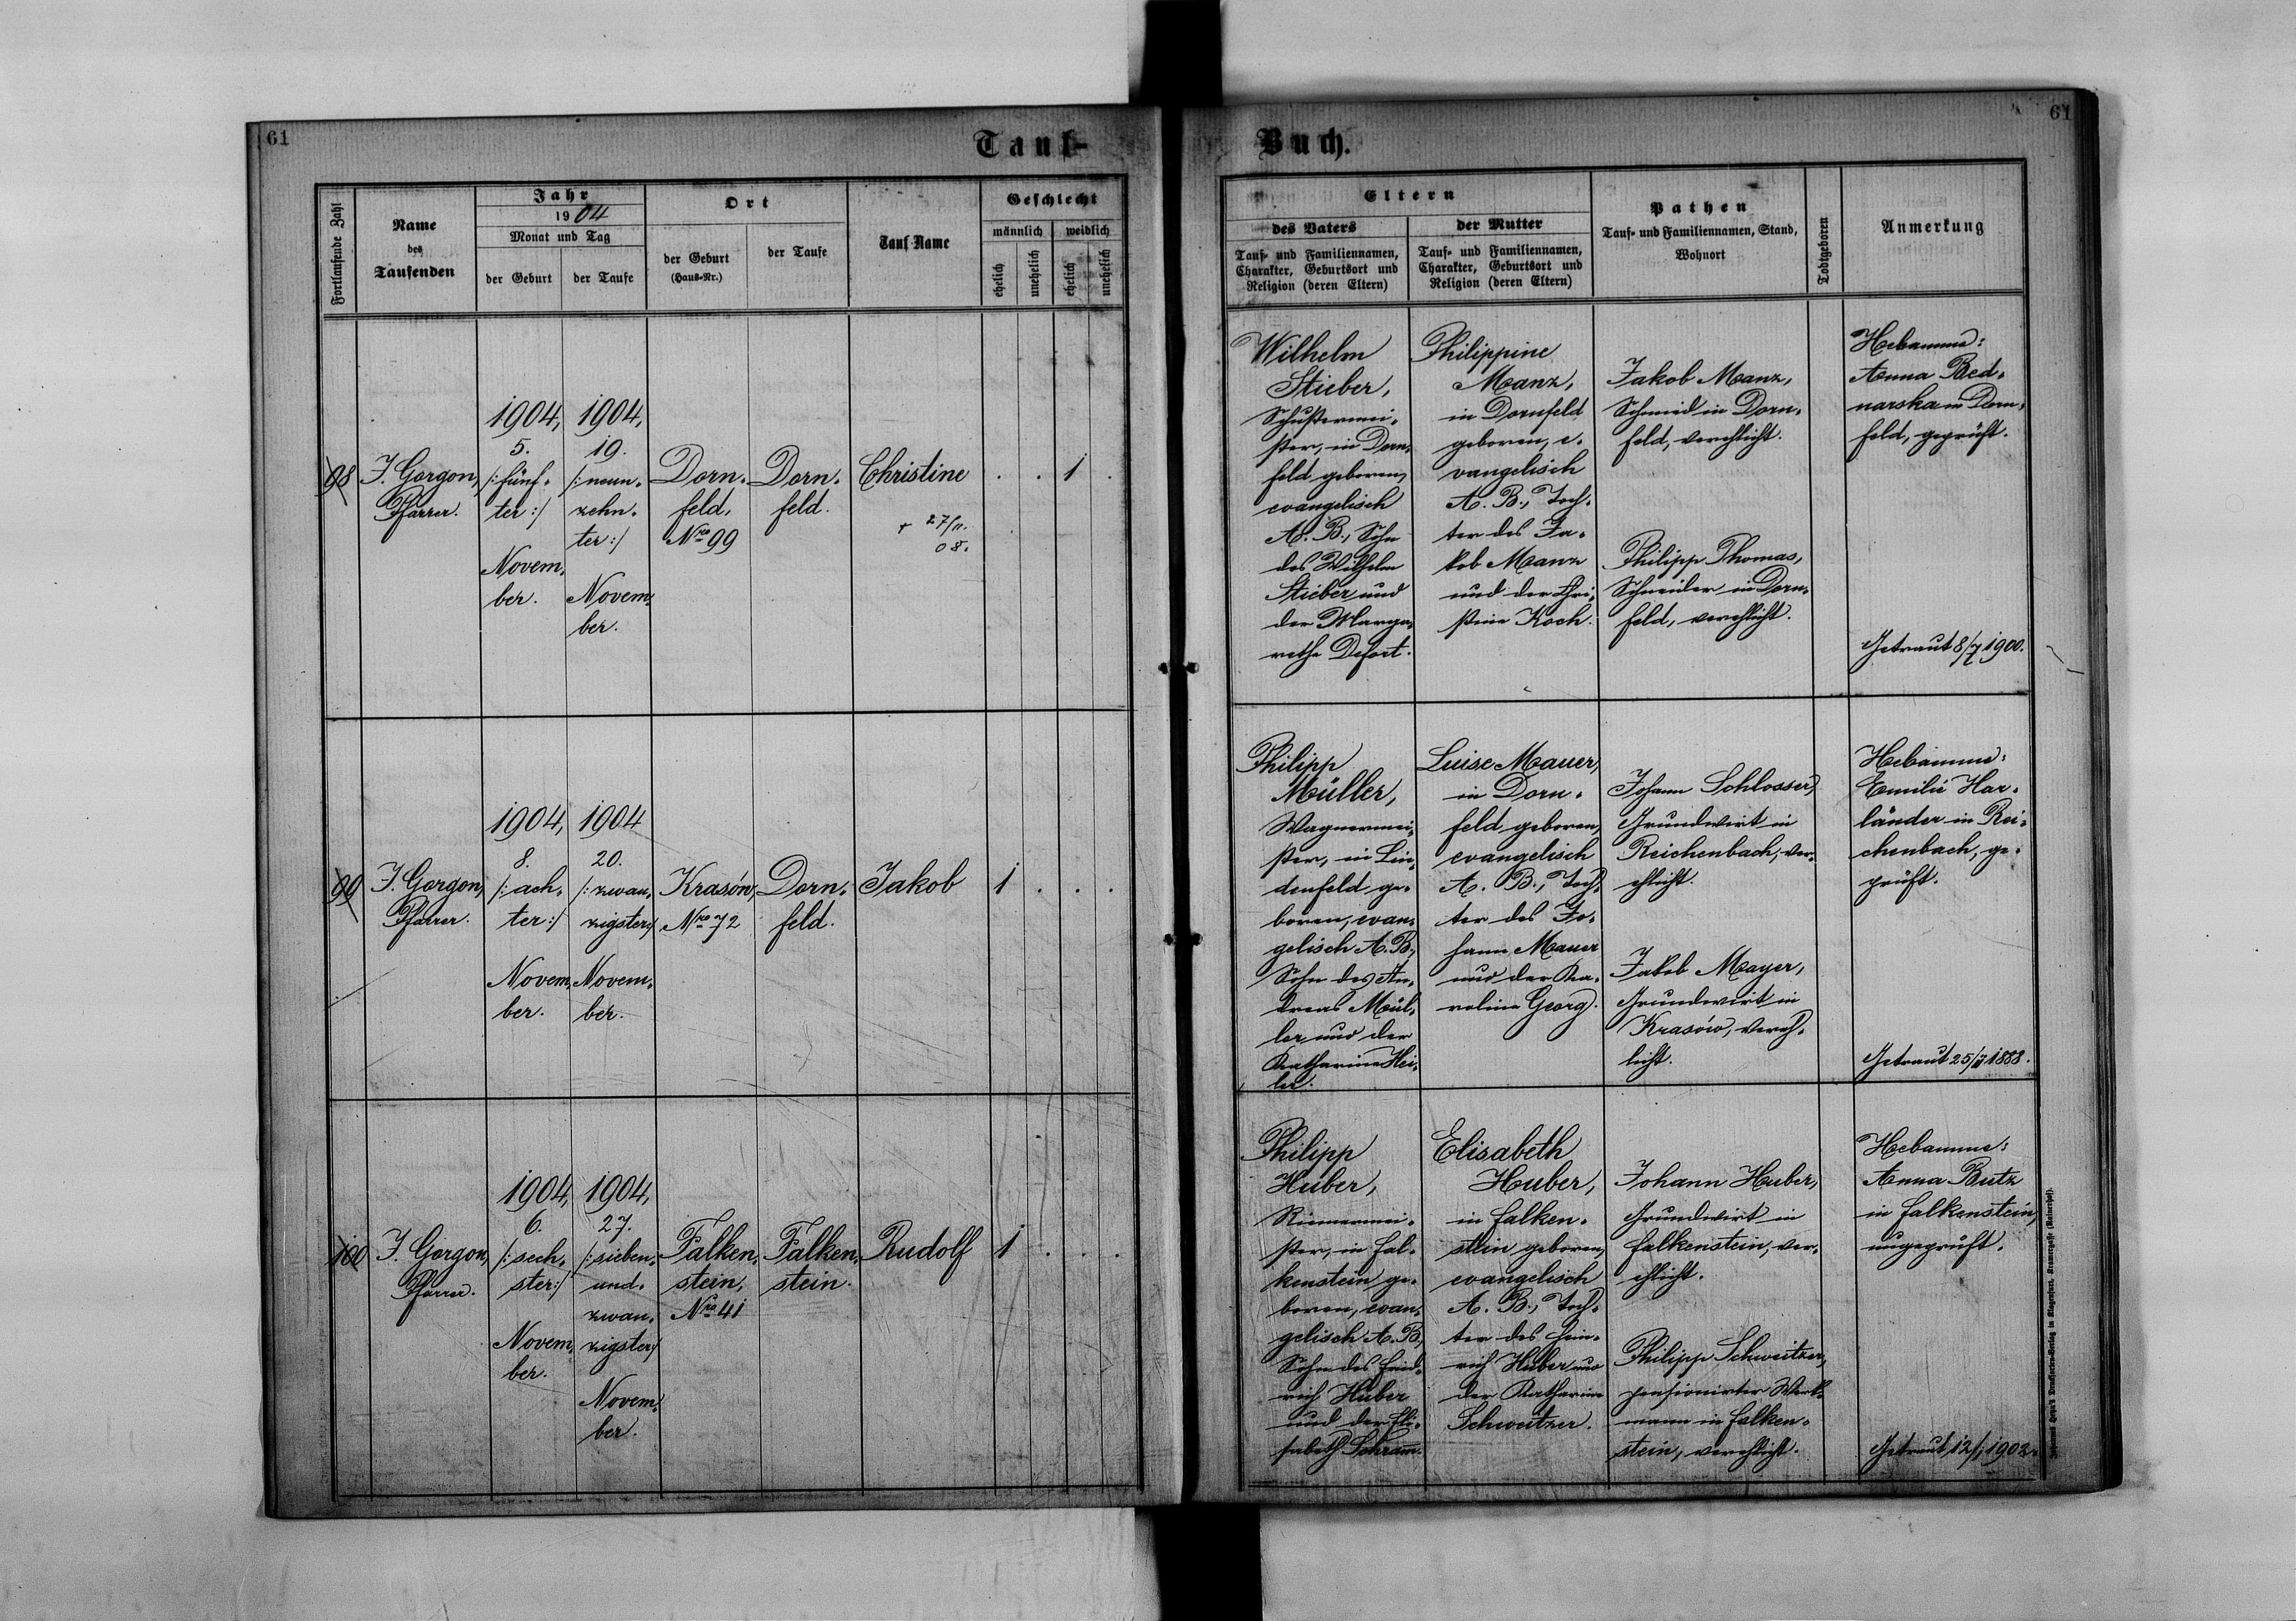 61
Tauf-
Fortlaufende Zahl
Name
des
Taufenden
Jahr
1904
Monat und Tag
der Geburt
der Taufe
Ort
der Geburt
(Haus-Nr.)
der Taufe
Tauf-Name
Geschlecht
männlich
weiblich
ehelich
unehelich
ehelich
unehelich
98
J. Gorgon,
Pfarrer.
1904,
5.
/: fünf-
ter :/
Novem-
ber.
1904,
19.
/: neun-
zehn-
ter :/
Novem-
ber.
Dorn-
feld,
Nro 99
Dorn-
feld.
Christine
+ 27/11.
08.
. . 1 .
99
J. Gorgon,
Pfarrer.
1904,
8.
/: ach-
ter :/
Novem-
ber.
1904
20.
/: zwan-
zigster :/
Novem-
ber.
Krasów,
Nro 72
Dorn-
feld.
Jakob
1 . . .
100
J. Gorgon,
Pfarrer.
1904,
6.
/: sech-
ster :/
Novem-
ber.
1904,
27.
/: sieben-
und-
zwan-
zigster :/
Novem-
ber.
Falken-
stein,
Nro 41
Falken-
stein.
Rudolf
1 . . .
61
Buch.
Eltern
des Vaters
Tauf- und Familiennamen,
Charakter, Geburtsort und
Religion (deren Eltern)
der Mutter
Tauf- und Familiennamen,
Charakter, Geburtsort und
Religion (deren Eltern)
Pathen
Tauf- und Familiennamen, Stand,
Wohnort
Todtgeboren
Anmerkung
Wilhelm
Stieber,
Schustermei-
ster, in Dorn-
feld geboren,
evangelisch
A. B., Sohn
des Wilhelm
Stieber und
der Marga-
rethe Defort.
Philippine
Manz,
in Dornfeld
geboren, e-
vangelisch
A. B., Toch-
ter des Ja-
kob Manz
und der Chri-
stine Koch.
Jakob Manz,
Schmied in Dorn-
feld, verehlicht.
Philipp Thomas,
Schneider in Dorn-
feld, verehlicht.
Hebamme:
Anna Bed-
narska in Dorn-
feld, geprüft.
Getraut 8/7 1900.
Philipp
Müller,
Wagnermei-
ster, in Lin-
denfeld ge-
boren, evan-
gelisch A. B.,
Sohn des An-
dreas Mül-
ler und der
Katharina Hei-
ler.
Luise Mauer,
in Dorn-
feld geboren,
evangelisch
A. B., Toch-
ter des Jo-
hann Mauer
und der Ka-
roline Georg.
Johann Schlosser,
Grundwirt in
Reichenbach, ver-
ehlicht.
Jakob Mayer,
Grundwirt in
Krasów, vereh-
licht.
Hebamme:
Emilie Har-
länder in Rei-
chenbach, ge-
prüft.
Getraut 25/ 1888.
Philipp
Huber,
Riemermei-
ster, in Fal-
kenstein ge-
boren, evan-
gelisch A. B.,
Sohn des Fried-
rich Huber
und der Eli-
sabeth Schramm.
Elisabeth
Huber,
in Falken-
stein geboren,
evangelisch
A. B., Toch-
ter des Hein-
rich Huber und
der Katharine
Schweitzer.
Johann Huber,
Grundwirt in
Falkenstein, ver-
ehlicht.
Philipp Schweitzer,
pensionirter Werk-
mann in Falken-
stein, verehlicht.
Hebamme:
Anna Butz
in Falkenstein,
ungeprüft.
Getraut 12/1 1902.